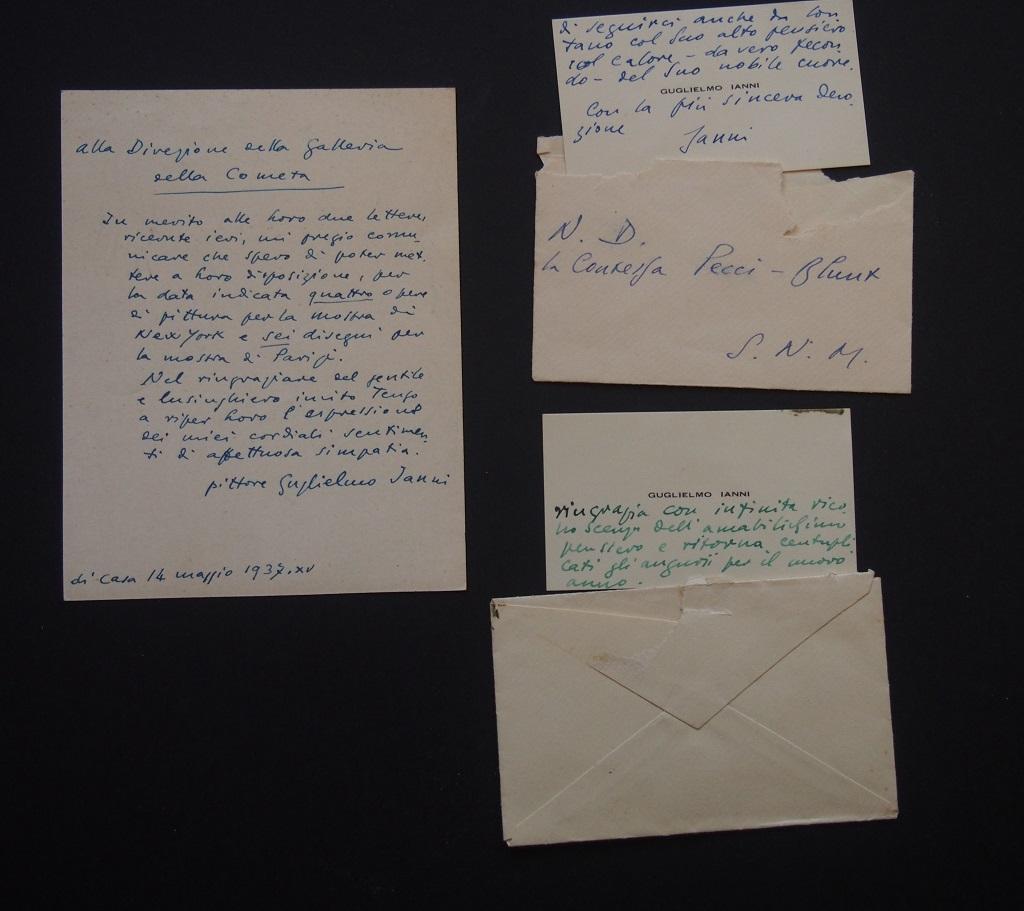 alla Direzione della Galleria
della Cometa
In merito alle loro due lettere,
ricevute ieri, mi pregio comu-
nicare che spero di poter met-
tere a loro disposizione, per
la data indicata quattro opere
di pittura per la mostra di
New York e sei disegni per
la mostra di Parigi.
Nel ringraziare del gentile
e lusinghiero invito tengo
a loro l'espressione
dei miei cordiali sentimen-
ti di affettuosa simpatia.
pittore Guglielmo Ianni
di Casa 14 maggio 1937.XV
di seguirci anche da lon-
tano col Suo alto pensiero
col calore – da vero
do – del Suo nobile cuore.
GUGLIELMO IANNI
Con la più sincera devo-
zione Ianni
N. D.
la Contessa Pecci – Blunt
S. N. M.
GUGLIELMO IANNI
ringrazia con infinita rico-
noscenza dell'amabilissimo
pensiero e ritorna centupli
cati gli augurii per il nuovo
anno.